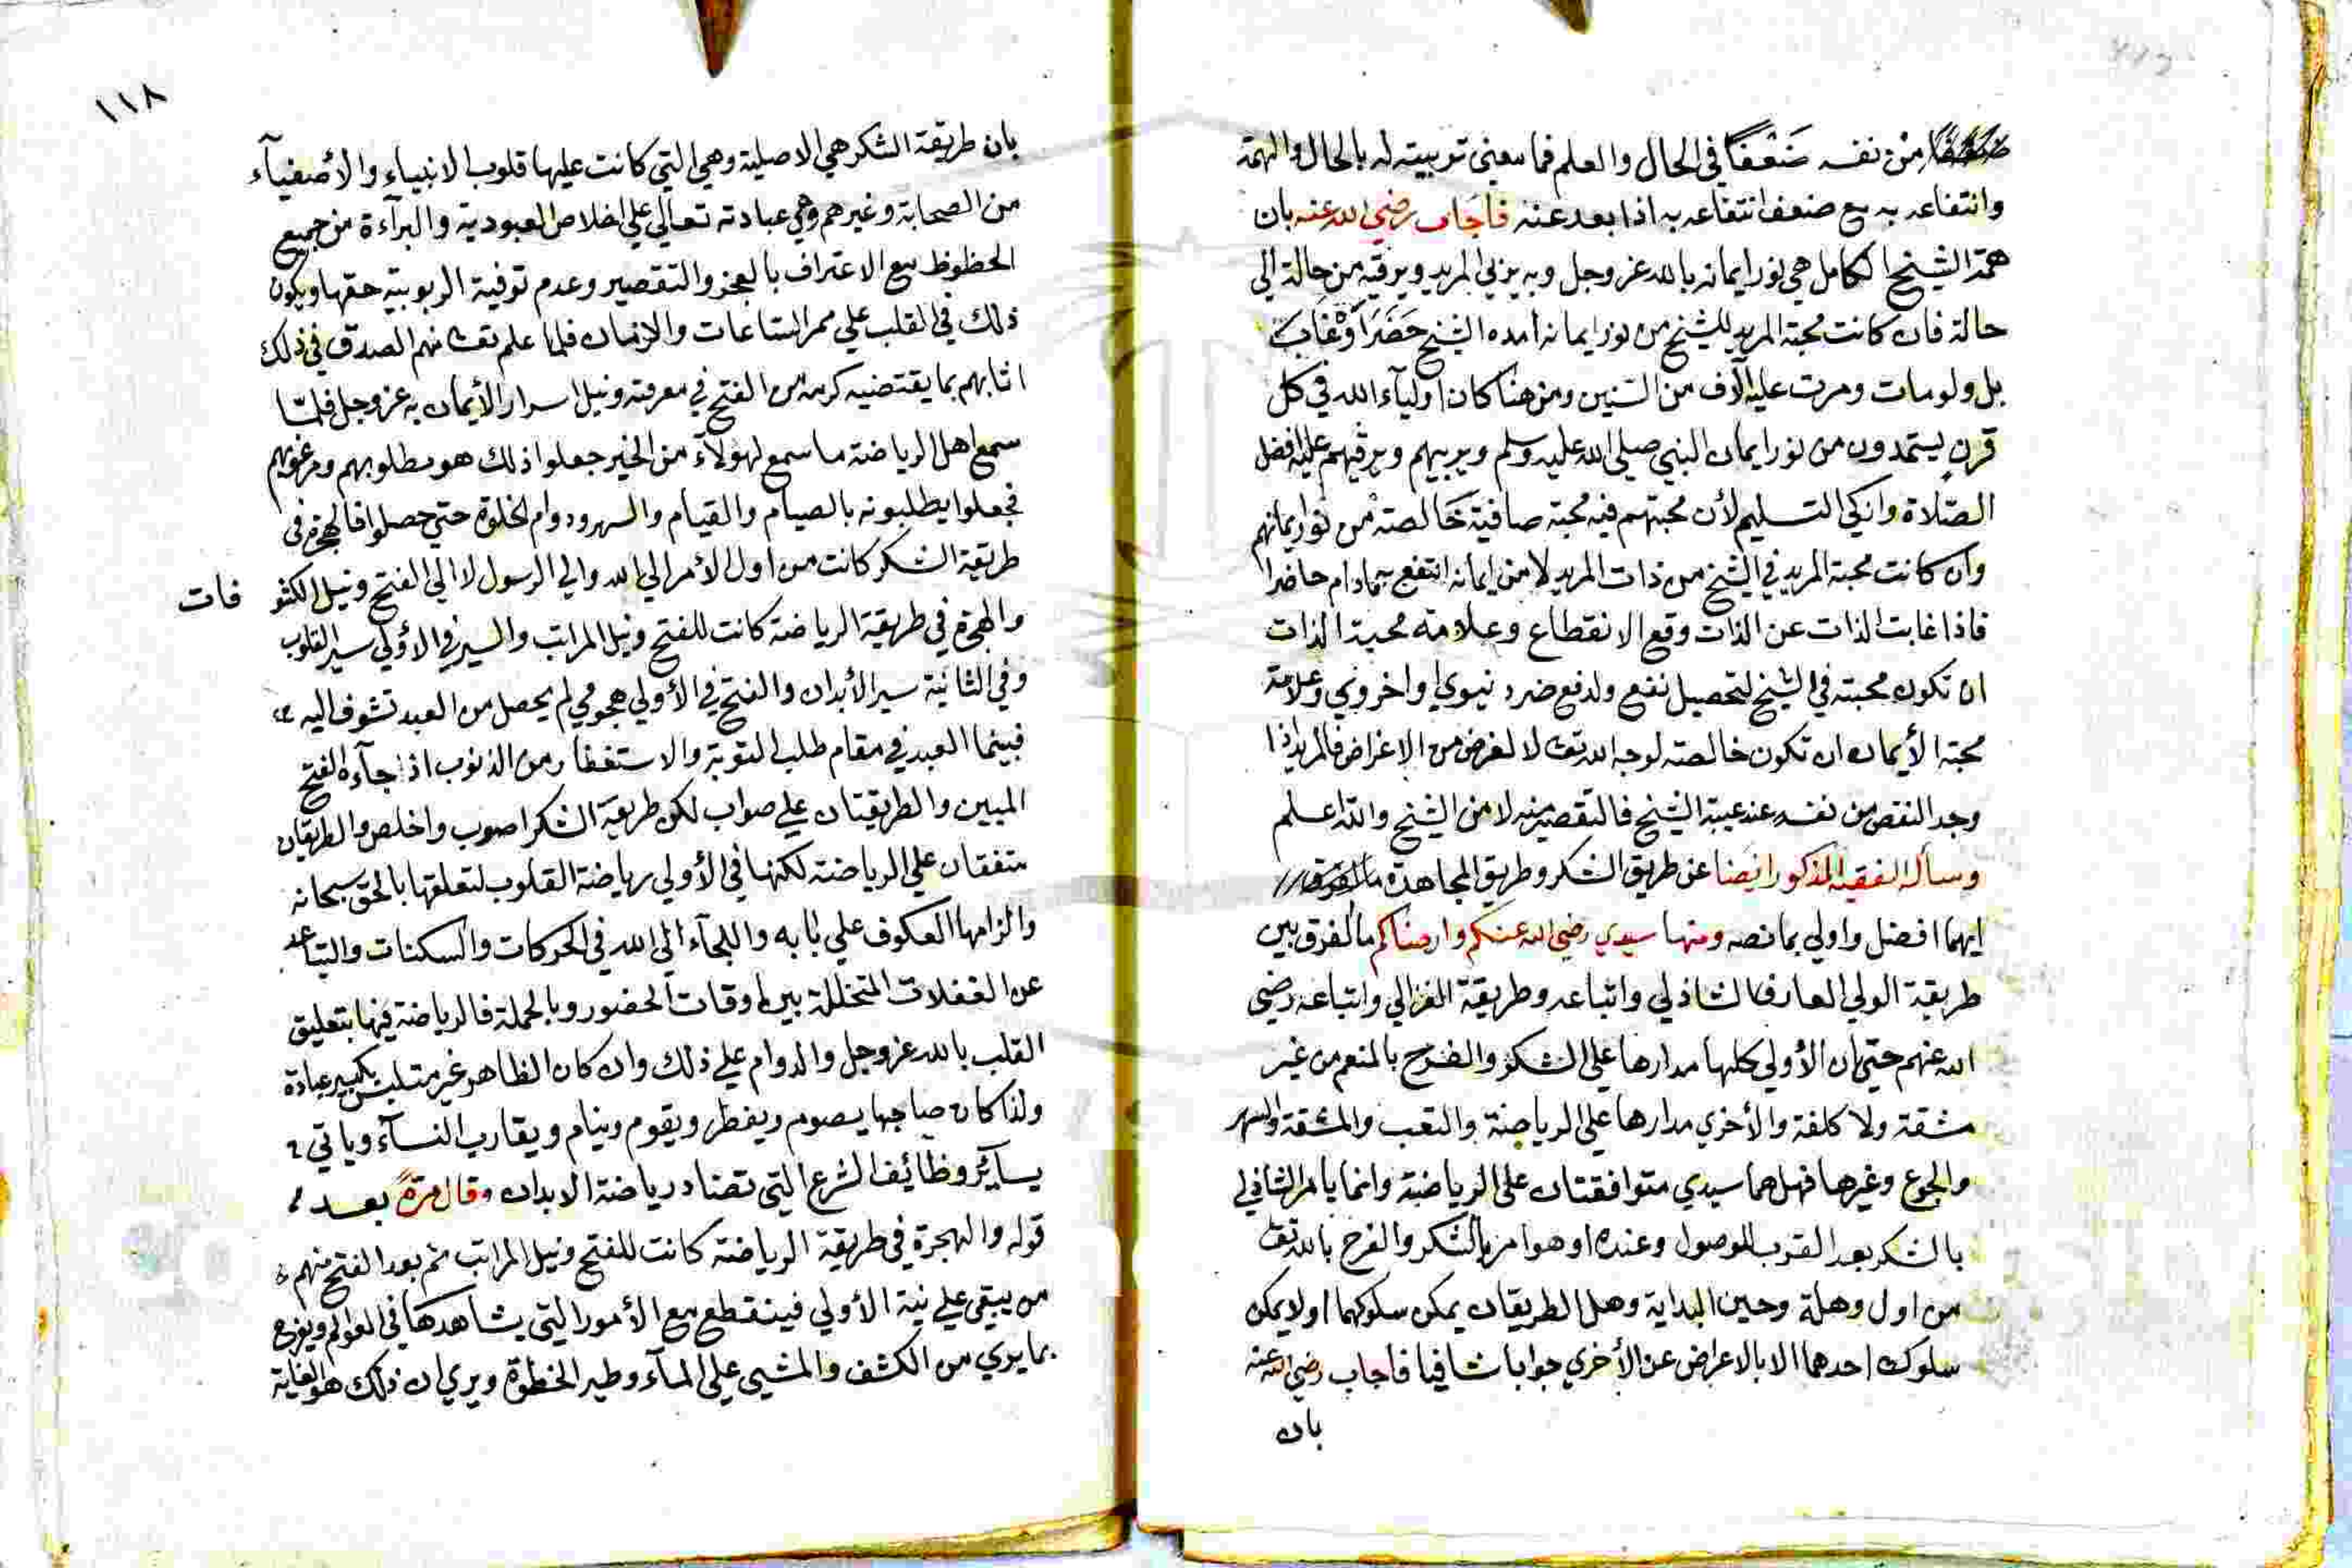 من نفسه ضَعْفًا في الحال والعلم فما معني تربيته له بالحال والهمة
وانتفاعه به مع ضعف انتفاعه به اذا بعد عنه فاجاب رضي الله عنه بان
همة الشيخ الكامل هي نور ايمانه بالله عز وجل وبه يربي المريد ويرقيه من حالة الي
حالة فان كانت محبة المريد للشيخ من نور ايمانه امده الشيخ حَضَرَ اَوْ غَابَ
بل ولو مات ومرت عليه آلاف من السنين ومن هنا كان اولياء الله في كل
قرن يستمدون من نور ايمان النبي صلي الله عليه وسلم ويربيهم ويرقيهم عليه افضل
الصّلاة وازكي التسليم لأن محبتهم فيه محبة صافية خَالصة من نور ايمانهم
وان كانت محبة المريد في الشيخ من ذات المريد لا من ايمانه انتفع به مادام حاضرا
فاذا غابت الذات عن الذات وقع الانقطاع وعلامة محبة الذات
ان تكون محبته في الشيخ لتحصيل نفع ولدفع ضرر دنيوي او اخروي وعلامة
محبة الأيمان ان تكون خالصة لوجه الله تعا لا لغرض من الاغراض فالمريد اذا
وجد النقص من نفسه عند غيبة الشيخ فالتقصير منه لا من الشيخ والله اعلم
وسأله الفقيه المذكور ايضا عن طريق الشكر وطريق المجاهدة
ايهما افضل واولي بما نصه ومنها سيدي رضي الله عنكم وارضاكم ما الفرق بين
طريقة الولي العارف الشاذلي واتباعه وطريقة الغزالي واتباعه رضي
الله عنهم حتي ان الأولي كلها مدارها علي الشكر والفرح بالمنعم من غير
مشقة ولا كلفة والأخري مدارها علي الرياضة والتعب والمشقة والسهر
والجوع وغيرها فهل هما سيدي متوافقتان علي الرياضة وانما يامر الشاذلي
بالشكر بعد القرب للوصول وعنده او هو امر بالشكر والفرح بالله تعا
من اول وهلة وحين البداية وهل الطريقان يمكن سلوكهما او لا يمكن
سلوك احدهما الا بالاعراض عن الأخري جوابا شافيا فاجاب رضي الله عنه
بان
١١٨
بان طريقة الشكر هي الاصلية وهي التي كانت عليها قلوب الانبياء والأصفيآء
من الصحابة وغيرهم وهي عبادته تعالي علي اخلاص العبودية والبرآءة من جميع
الحظوظ مع الاعتراف بالعجز والتقصير وعدم توفية الربوبية حقها وبكون
ذلك في القلب علي ممر الساعات والازمان فلما علم تعا منهم الصدق في ذلك
اثابهم بما يقتضيه كرمه من الفتح في معرفته ونيل اسرار الأيمان به عز وجل فلمّا
سمع اهل الرياضة ما سمع لهؤلآء من الخير جعلوا ذلك هو مطلوبهم ومرغوبهم
فجعلوا يطلبونه بالصيام والقيام والسهر ودوام الخلوة حتي حصلوا فالهجرة في
طريقة الشكر كانت من اول الأمر الي الله والي الرسول لا الي الفتح ونيل الكشو فات
والهجرة في طريقة الرياضة كانت للفتح ونيل المراتب والسير في الأولي سير القلوب
وفي الثانية سير الأبدان والفتح في الأولي هجومي لم يحصل من العبد تشوف اليه
فبينما العبد في مقام طلب التوبة والاستغفار من الذنوب اذ جآءه الفتح
المبين والطريقتان علي صواب لكن طريقة الشكر اصوب واخلص والطريقتان
متفقتان علي الرياضة لكنها في الأولي رياضة القلوب لتعلقها بالحق سبحانه
والزامها العكوف علي بابه واللجآء الي الله في الحركات والسكنات والتباعد
عن الغفلات المتخللة بين اوقات الحضور وبالجملة فالرياضة فيها بتعليق
القلب بالله عز وجل والدوام علي ذلك وان كان الظاهر غير متلبس بكبير عبادة
ولذا كان صاحبها يصوم ويفطر ويقوم وينام ويقارب النسآء وياتي
بسآئر وظائف الشرع التي تضاد رياضة الابدان وقال مرةً بعد
قوله والهجرة في طريقة الرياضة كانت للفتح ونيل المراتب ثم بعد الفتح منهم
من يبقي علي نية الأولي فينقطع مع الأمور التي يشاهدها في العوالم ويفرح
بما يري من الكشف والمشي علي المآء وطير الخطوة ويري ان ذلك هو الغاية